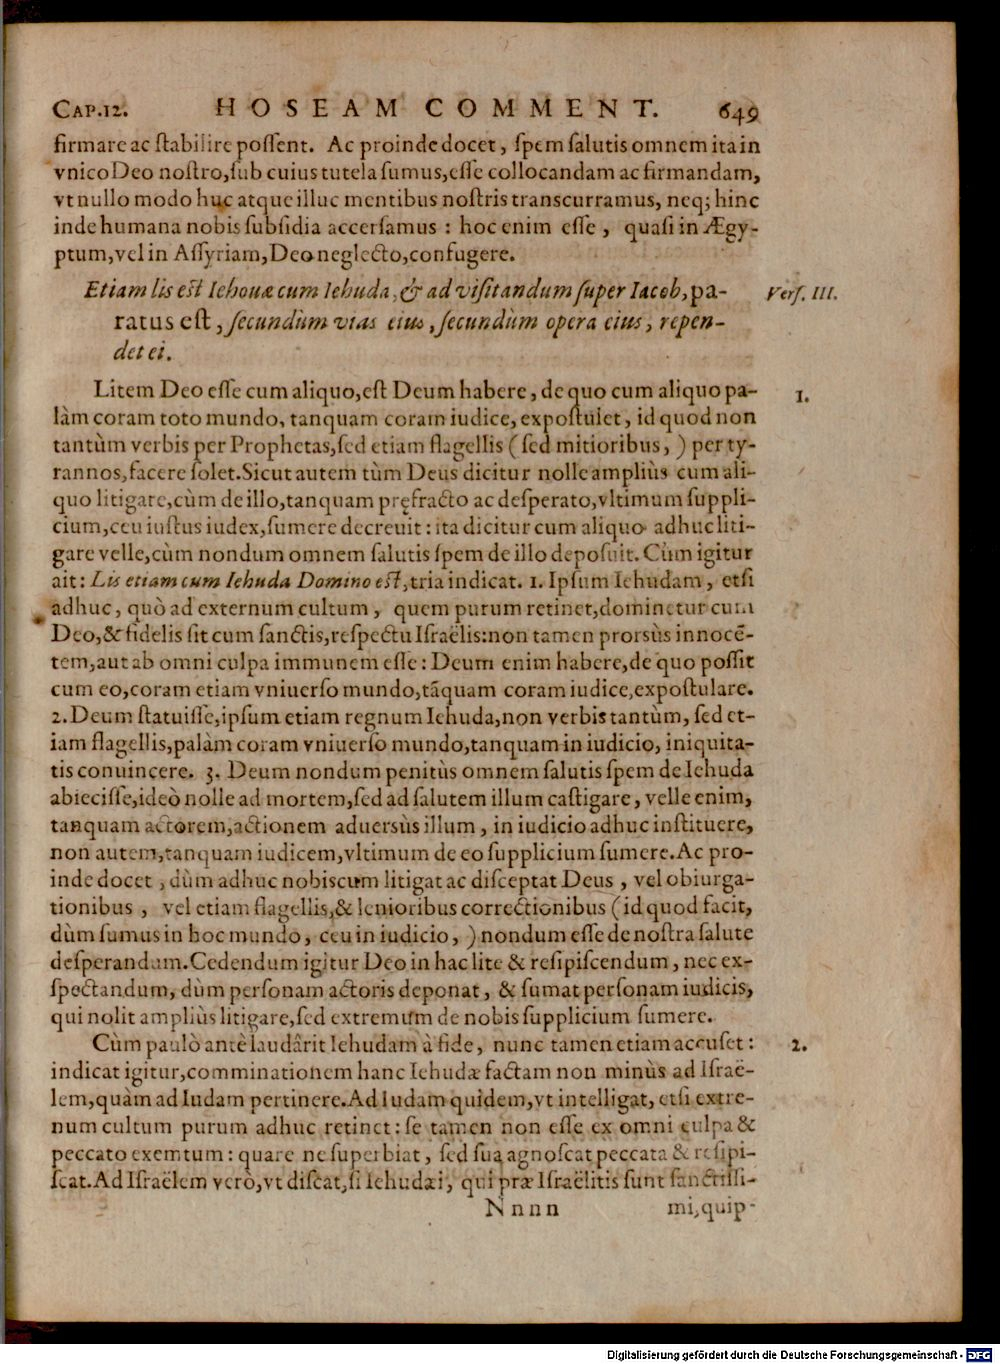 CAP.12. HOSEAM COMMENT. 649
firmare ac ſtabilire poſſent. Ac proinde docet, ſpem ſalutis omnem ita in
vnico Deo noſtro,ſub cuius tutela ſumus,eſſe collocandam ac firmandam,
vt nullo modo huc atque illuc mentibus noſtris transcurramus, neq; hinc
inde humana nobis ſubſidia accerſamus : hoc enim eſſe, quaſi in Ægy-
ptum,vel in Aſſyriam,Deo neglecto,confugere.
Etiam lis eſt Iehouæ cum Iehuda, & ad viſitandum ſuper Iacob, pa- Verſ. III.
ratus eſt, ſecundùm vias eius, ſecundùm opera eius, repen-
det ei.
Litem Deo eſſe cum aliquo,eſt Deum habere, de quo cum aliquo pa- 1.
làm coram toto mundo, tanquam coram iudice, expoſtulet, id quod non
tantùm verbis per Prophetas,ſed etiam flagellis (ſed mitioribus, ) per ty-
rannos,facere ſolet.Sicut autem tùm Deus dicitur nolle ampliùs cum ali-
quo litigare,cùm de illo,tanquam pręfracto ac deſperato,vltimum ſuppli-
cium,ceu iuſtus iudex,ſumere decreuit : ita dicitur cum aliquo adhuc liti-
gare velle,cùm nondum omnem ſalutis ſpem de illo depoſuit. Cùm igitur
ait : Lis etiam cum Iehuda Domino eſt,tria indicat. 1. Ipſum Iehudam, etſi
adhuc, quò ad externum cultum, quem purum retinet,dominetur cum
Deo,& fidelis ſit cum ſanctis,reſpectu Iſraëlis:non tamen prorsùs innocē-
tem,aut ab omni culpa immunem eſſe : Deum enim habere,de quo poſſit
cum eo,coram etiam vniuerſo mundo,tāquam coram iudice,expoſtulare.
2. Deum ſtatuiſſe,ipſum etiam regnum Iehuda,non verbis tantùm, ſed et-
iam flagellis,palàm coram vniuerſo mundo,tanquam in iudicio, iniquita-
tis conuincere. 3. Deum nondum penitùs omnem ſalutis ſpem de Iehuda
abieciſſe,ideò nolle ad mortem,ſed ad ſalutem illum caſtigare, velle enim,
tanquam actorem,actionem aduersùs illum, in iudicio adhuc inſtituere,
non autem,tanquam iudicem,vltimum de eo ſupplicium ſumere.Ac pro-
inde docet, dùm adhuc nobiscum litigat ac diſceptat Deus, vel obiurga-
tionibus, vel etiam flagellis,& lenioribus correctionibus (id quod facit,
dùm ſumus in hoc mundo, ceu in iudicio, ) nondum eſſe de noſtra ſalute
deſperandum.Cedendum igitur Deo in hac lite & reſipiſcendum, nec ex-
ſpectandum, dùm perſonam actoris deponat, & ſumat perſonam iudicis,
qui nolit ampliùs litigare,ſed extremum de nobis ſupplicium ſumere.
Cùm paulò antè laudârit Iehudam à fide, nunc tamen etiam accuſet : 2.
indicat igitur,comminationem hanc Iehudæ factam non minùs ad Iſraë-
lem,quàm ad Iudam pertinere.Ad Iudam quidem,vt intelligat, etſi extre-
num cultum purum adhuc retinet : ſe tamen non eſſe ex omni culpa &
peccato exemtum : quare ne ſuperbiat, ſed ſua agnoſcat peccata & reſipi-
ſcat.Ad Iſraëlem verò,vt diſcat,ſi Iehudæi, qui præ Iſraëlitis ſunt ſanctiſſi-
Nnnn mi,quip-
Digitalisierung gefördert durch die Deutsche Forschungsgemeinschaft - DFG